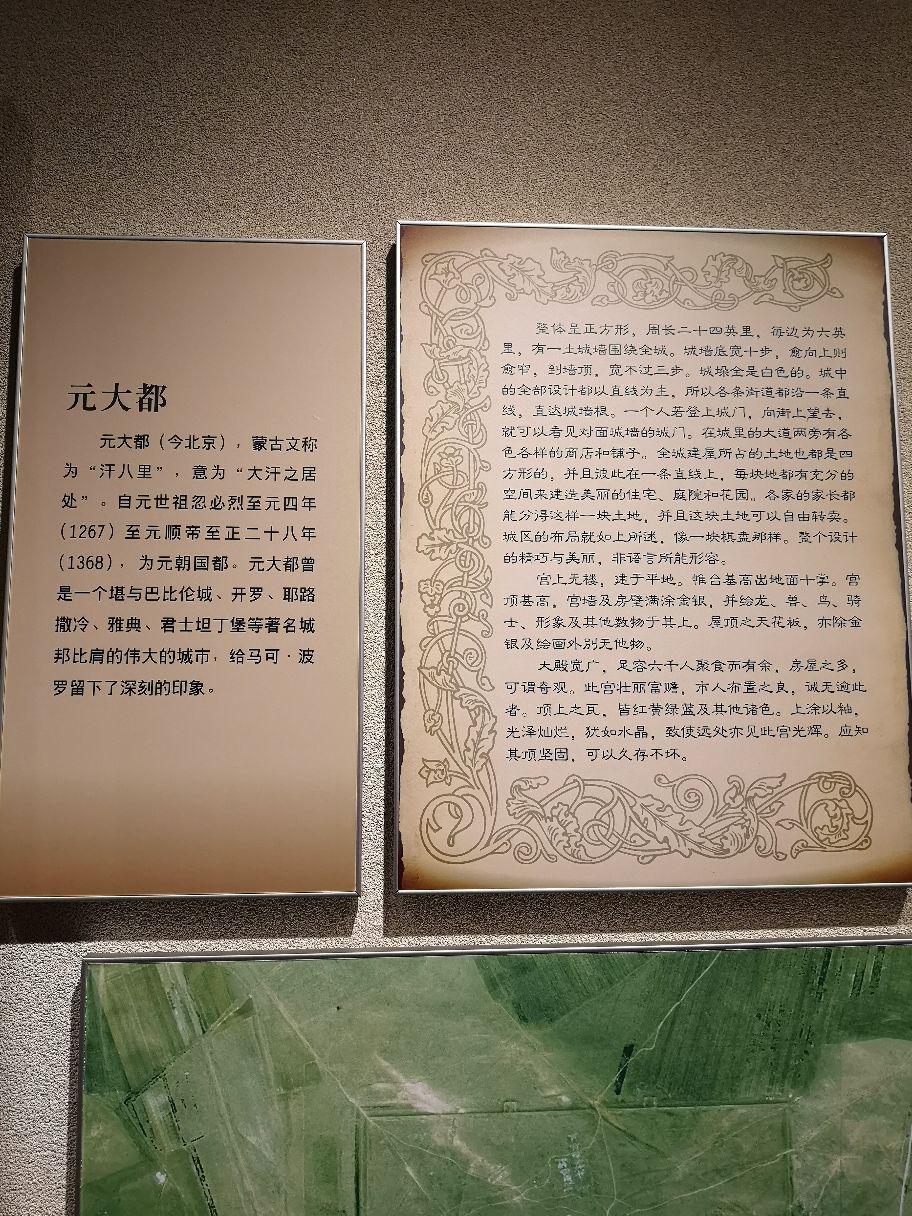 元大都
元大都（今北京），蒙古文称
为“汗八里”，意为“大汗之居
处”。自元世祖忽必烈至元四年
（1267）至元顺帝至正二十八年
（1368），为元朝国都。元大都曾
是一个堪与巴比伦城、开罗、耶路
撒冷、雅典、君士坦丁堡等著名城
邦比肩的伟大的城市，给马可·波
罗留下了深刻的印象。
整体呈正方形，周长二十四英里，每边为六英
里，有一土城墙围绕全城。城墙底宽十步，愈向上则
愈窄，到墙顶，宽不过三步。城垛全是白色的。城中
的全部设计都以直线为主，所以各条街道都沿一条直
线，直达城墙根。一个人若登上城门，向街上望去，
就可以看见对面城墙的城门。在城里的大道两旁有各
色各样的商店和铺子。全城建屋所占的土地也都是四
方形的，并且彼此在一条直线上，每块地都有充分的
空间来建造美丽的住宅、庭院和花园。各家的家长都
能分得这样一块土地，并且这块土地可以自由转卖。
城区的布局就如上所述，像一块棋盘那样。整个设计
的精巧与美丽，非语言所能形容。
宫上无楼，建于平地。惟台基高出地面十掌。宫
顶甚高，宫墙及房壁满涂金银，并绘龙、兽、鸟、骑
士、形象及其他数物于其上。屋顶之天花板，亦除金
银及绘画外别无他物。
大殿宽广，足容六千人聚食而有余，房屋之多，
可谓奇观。此宫壮丽富赡，市人布置之良，诚无逾此
者。顶上之瓦，皆红黄绿蓝及其他诸色。上涂以釉，
光泽灿烂，犹如水晶，致使远处亦见此宫光辉。应知
其顶坚固，可以久存不坏。